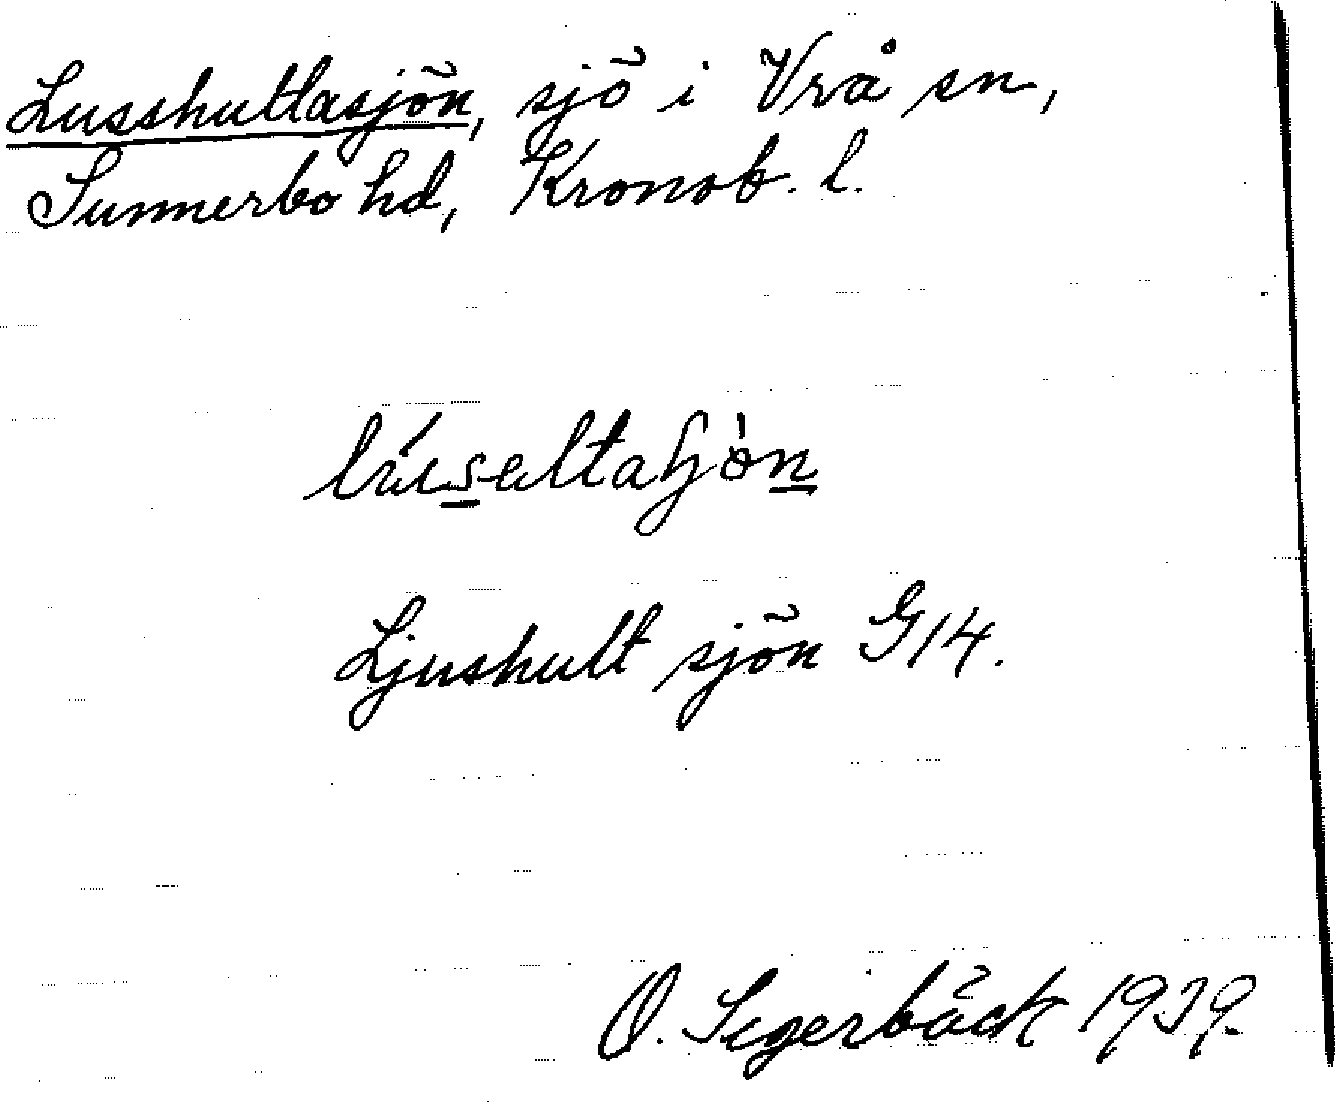 Lusshultasjön, sjö i Vrå sn,
Sunnerbo hd, Kronob. l.
Ljushult sjön G14.
O. Segerbäck 1939.